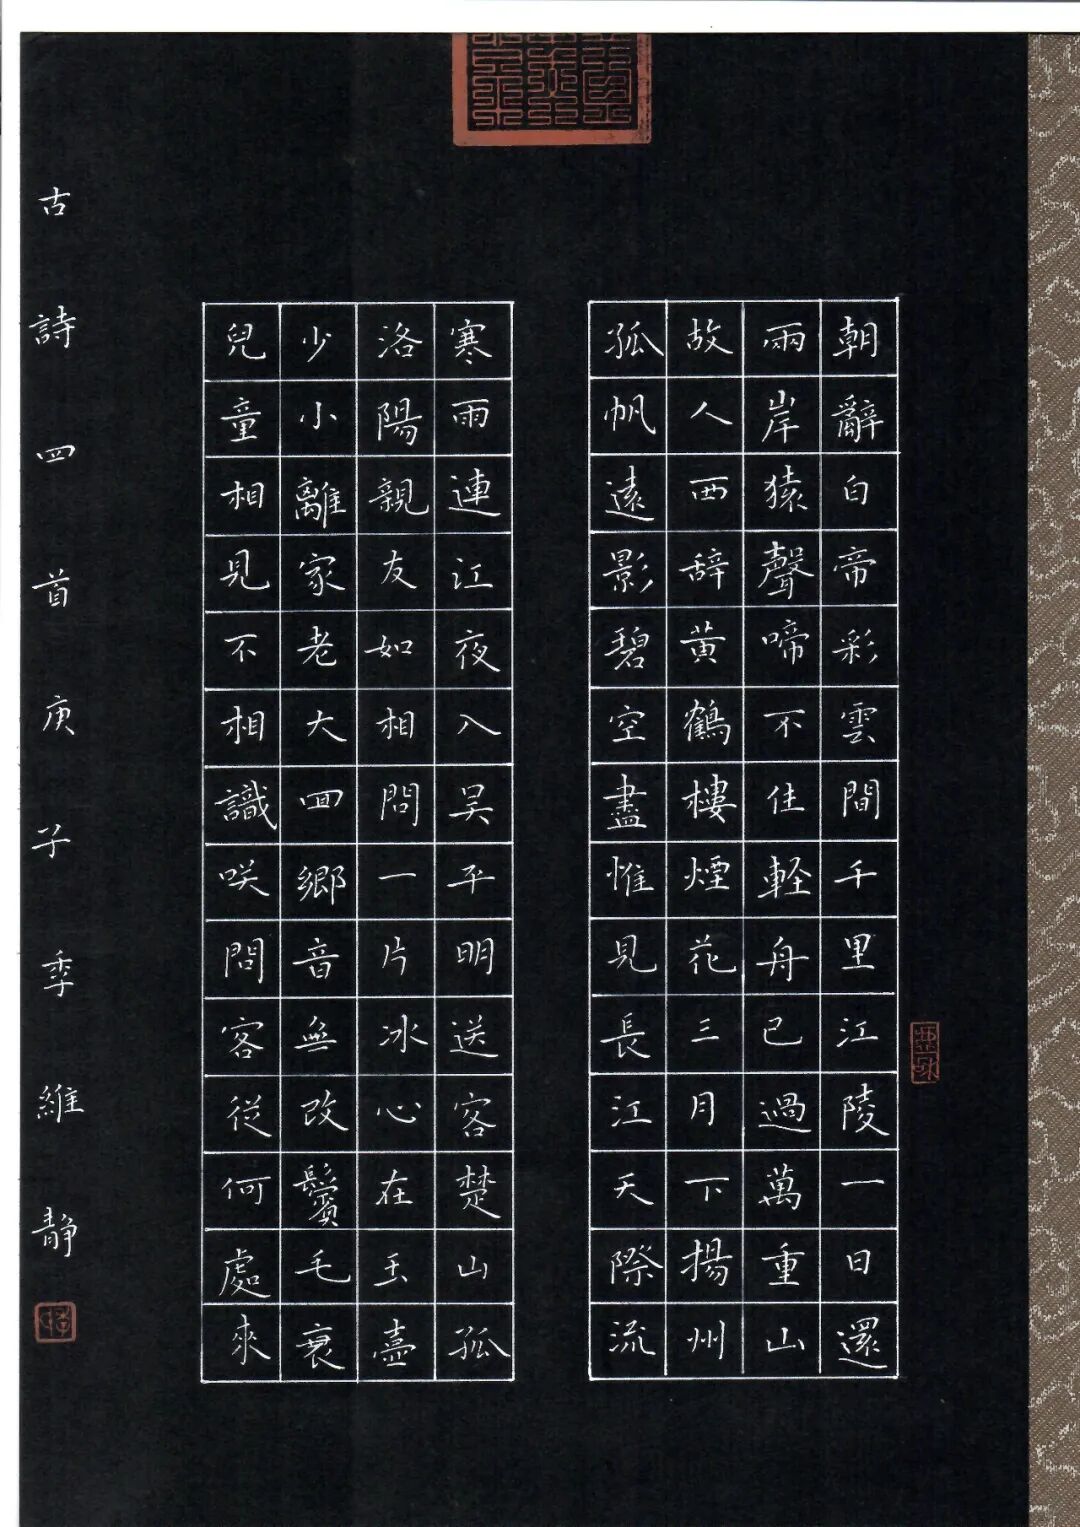 朝辭白帝彩雲間千里江陵一日還
兩岸猿聲啼不住軽舟已過萬重山
故人西辞黄鶴樓煙花三月下揚州
孤帆遠影碧空盡惟見長江天際流
寒雨連江夜入吴平明送客楚山孤
洛陽親友如相問一片冰心在玉壺
少小離家老大回鄉音無改鬢毛衰
兒童相見不相識咲問客從何處來
古詩四首庚子季維静